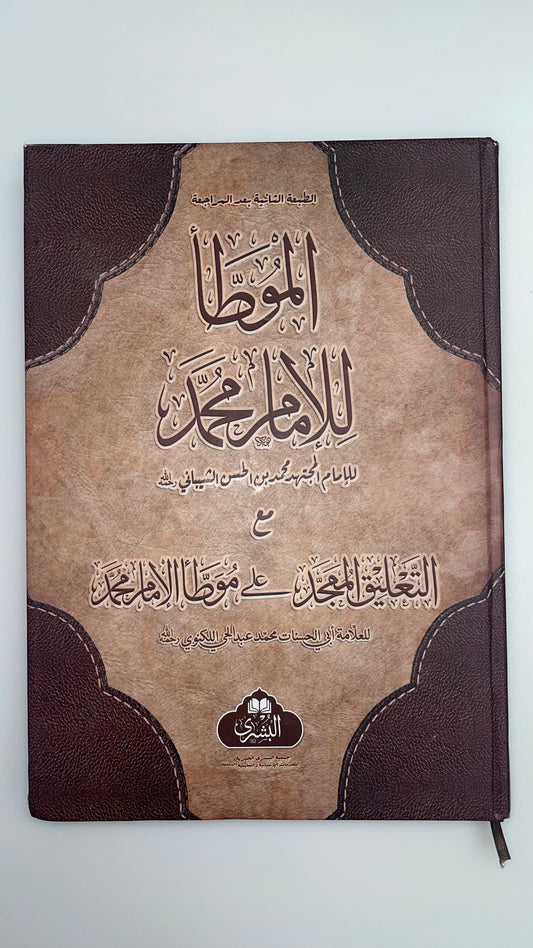 الطبعة الثانية بعد المراجعة
المُوَطَّأ
لِلإِمَامِ مُحَمَّد
للإمام المجتهد محمد بن الحسن الشيباني رحمه الله
مع
التَّعْلِيق المُمَجَّد على مُوَطَّأ الإِمَام مُحمَّد
للعلّامة أبي الحسنات محمّد عبد الحي اللكنوي رحمه الله
البُشرى
جمعية البشرى الخيرية